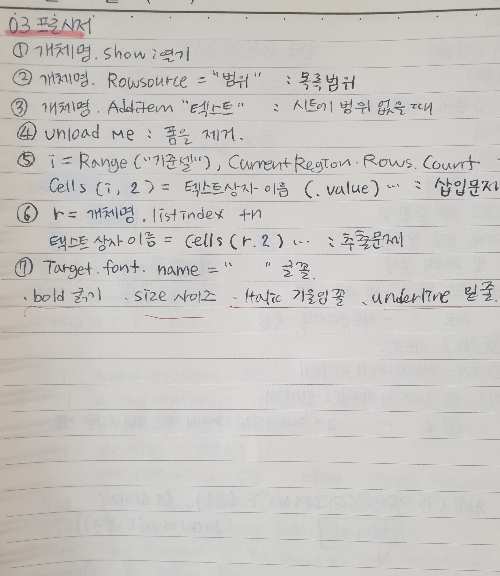 03 프로시저
① 개체명.show : 열기
② 개체명. Rowsource = "범위" : 목록범위
③ 개체명. Additem "텍스트" : 시트에 범위 없을 때
④ unload Me : 폼을 제거.
⑤ i = Range ("기준셀"), CurrentRegion.Rows.Count
Cells (i, 2) = 텍스트상자 이름 (.value) … : 삽입문제
⑥ r = 개체명.listindex +n
텍스트 상자 이름 = cells (r.2) … : 추출문제
⑦ Target.font. name = " " 글꼴.
.bold 굵기 .size 사이즈 .Italic 기울임꼴 .underline 밑줄.